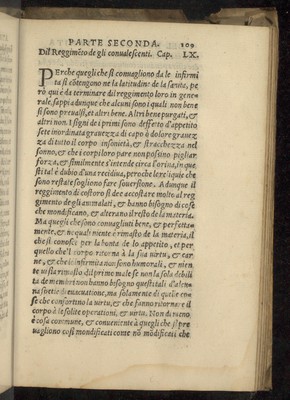 PARTE SECONDA. 109
Dil Reggimēto de gli conualescenti. Cap. LX.
PErche quegli che si conuagliono da le infirmi
ta si cōtengono ne la latitudine de la sanita, pe
rò qui è da terminare dil reggimento loro in gene
rale, sappi adunque che alcuni sono i quali non bene
si sono preualsi, et altri bene. Altri bene purgati, et
altri non. I segni de i primi sono deffetto d'appetito
sete inordinata grauezza di capo ò dolore grauez
za di tutto il corpo insonietà, & strachezza nel
sonno, & che i corpi loro pare non possino pigliar
forza, & similmente s'intende circa l'orina, in que
sti tal è dubio d'una recidiua, peroche le reliquie che
sono restate sogliono fare souersione. Adunque il
reggimento di costoro si dee accostare molto al reg
gimento de gli amalati, & hanno bisogno di cose
che mondificano, & alterano il resto de la materia.
Ma quegli che sono conuagliuti bene, & perfetta-
mente, & ne quali niente è rimasto de la materia, il
che si conosce per la bonta de lo appetito, et per
quello che'l corpo ritorna à la sua uirtu, & car
ne, & che le infirmita non sono humorali, & nien
te ui sta rimosto dil primo male se non la sola debili
ta de membri non hanno bisogno questi tali d'alcu-
na sorte di euacuatione, ma solamente di quelle co
se che confortino la uirtu, & che fanno ritornare il
corpo à le solite operationi, & uirtu. Non di meno
è cosa commune, & conueniente à quegli che si pre
uagliono cosi mondificati come nō mōdificati che